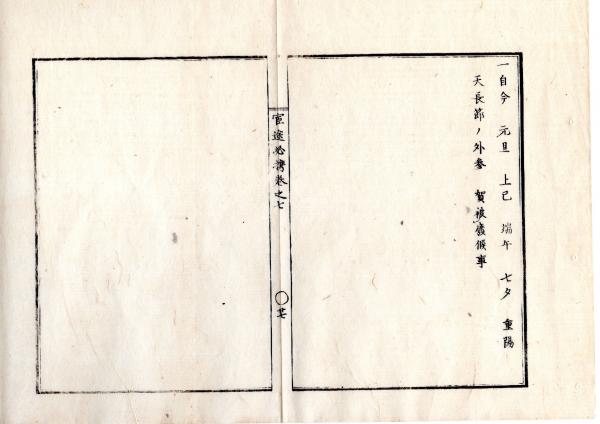 一自今　元旦　上巳　端午　七夕　重陽
天長節ノ外参　賀被廃候事
官途必携巻之七
〇 廿七